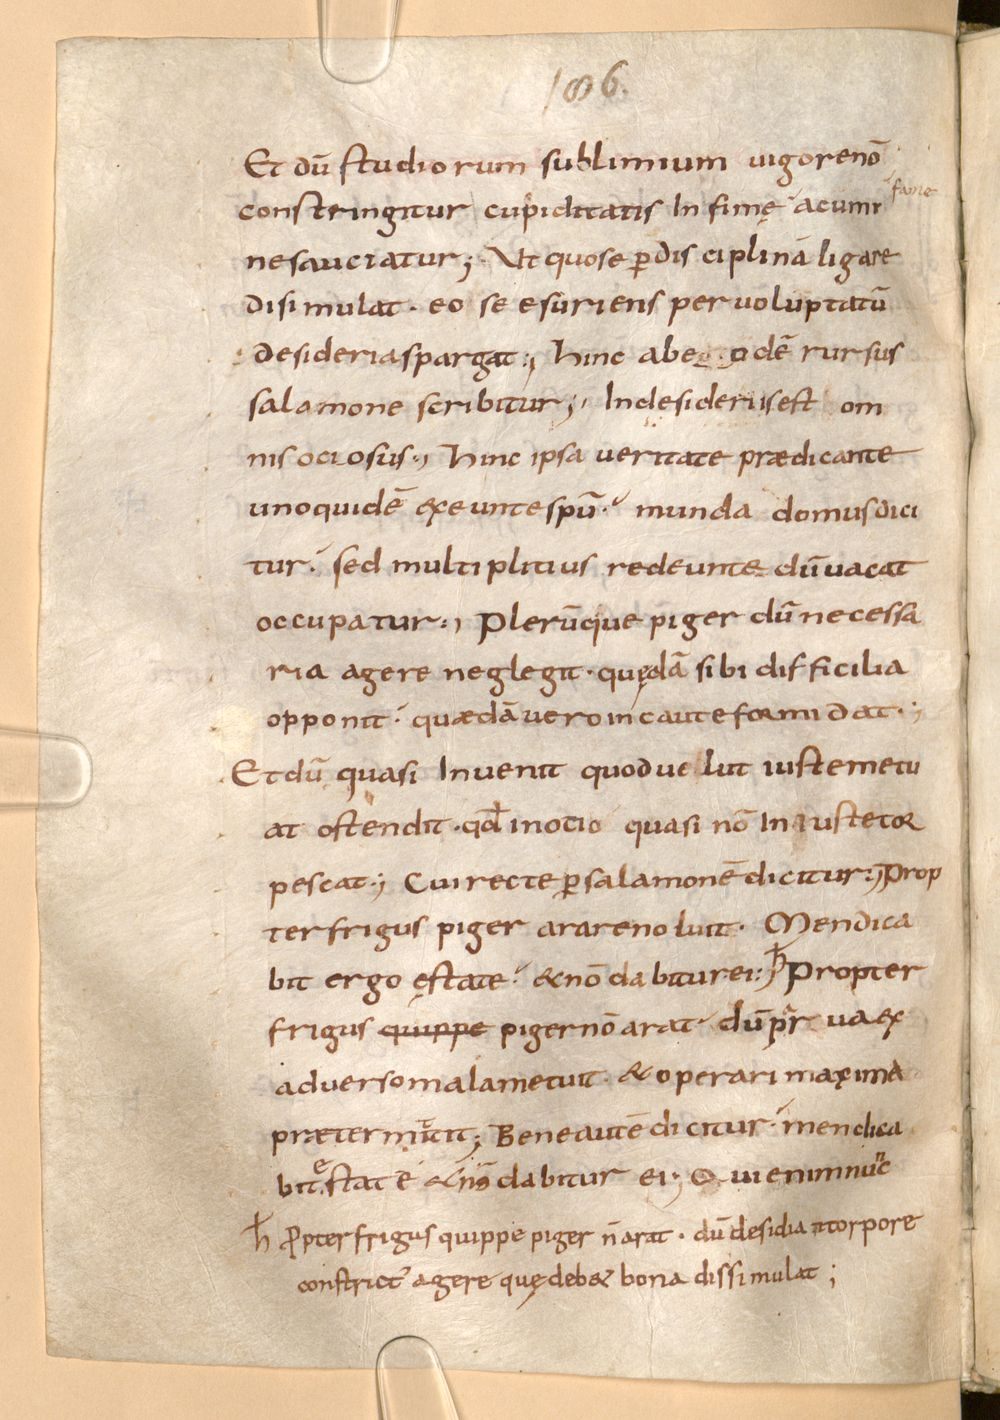 186.
Et dū studiorum sublimium uigorenō
constringitur cupiditatis Infimę acumi fame
nesauciatur; Ut quose ꝑdisciplinā ligare
disimulat· eo se esuriens peruoluptatū
desideriaspargat; hinc ab eodē rursus
salamone scribitur; Indesideriisest om
nisociosus; hinc ipsa ueritate prædicante
unoquidē exeuntespū· munda domusdici
tur· sed multiplitius redeunte dūuacat
occupatur; Plerūque piger dū necessa
ria agere neglegit· quędā sibi difficilia
opponit· quædāuero incauteformidat·;
Et dū quasi Inuenit quoduelut iustemetu
at ostendit· qđ inotio quasi nō Iniustetor
pescat; Cui recte ꝑsalamonē dicitur; Prop
terfrigus piger ararenoluit· Mendica
bit ergo ęstate· &nō dabiturei; ħ Propter
frigus quippe pigernō arat· dū praua ex
aduersomalametuit· & operari maxima
prætermittit; Beneautē dicitur· mendica
bit ęstate &nō dabitur ei; Quienimnūc
ħ Propterfrigus quippe piger n̄ arat· dū desidia torpore
constrict' agere quędeb& bona dissimulat;